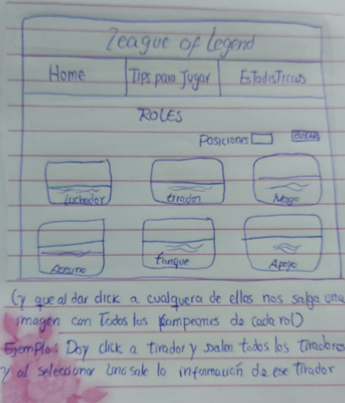 League of Legend
Home Tips para Jugar Estadisticas
ROLES
Posiciones
Luchador tirador Mago
Asesino tanque Apoyo
(y que al dar click a cualquiera de ellos nos salga una
imagen con Todos los Kampeones de cada rol)
Ejemplo: Doy click a tirador y salen todos los tiradores
y al seleccionar uno sale la información de ese tirador